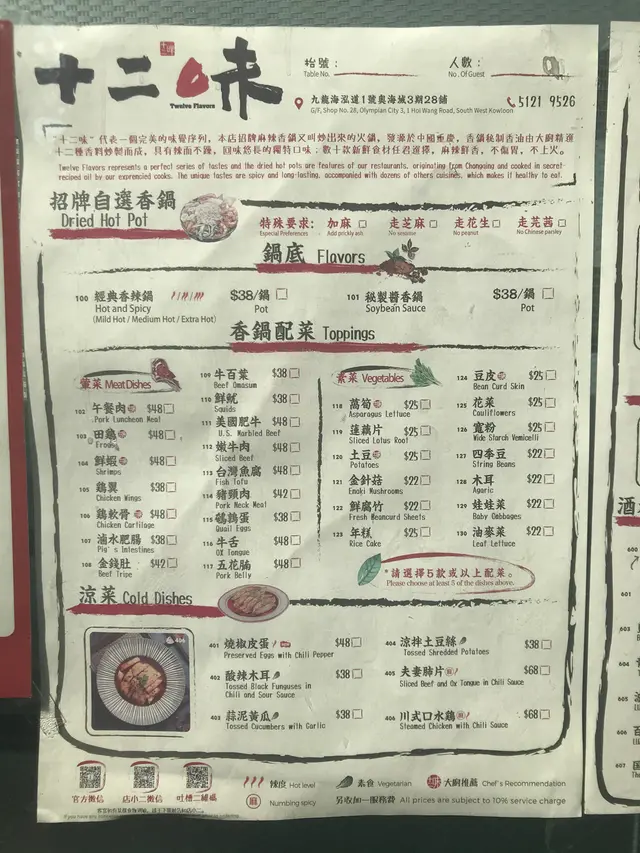 十二味
Twelve Flavors
枱號：
Table No.
人數：
No. Of Guest
九龍海泓道1號奧海城3期28舖
G/F, Shop No. 28, Olympian City 3, 1 Hoi Wang Road, South West Kowloon
5121 9526
"十二味"代表一個完美的味覺序列，本店招牌麻辣香鍋又叫炒出來的火鍋，發源於中國重慶，香鍋秘制香油由大廚精選
十二種香料炒製而成，具有辣而不躁，回味悠長的獨特口味；數十款新鮮食材任君選擇，麻辣鮮香，不傷胃，不上火。
Twelve Flavors represents a perfect series of tastes and the dried hot pots are features of our restaurants, originating from Chongqing and cooked in secret-
recipeed oil by our experienced cooks. The unique tastes are spicy and long-lasting, accompanied with dozens of others cuisines, which makes it healthy to eat.
招牌自選香鍋
Dried Hot Pot
特殊要求：
Especial Preferences
加麻
Add prickly ash
走芝麻
No sesame
走花生
No peanut
走芫茜
No Chinese parsley
鍋底 Flavors
100 經典香辣鍋 $38/鍋
Hot and Spicy Pot
(Mild Hot / Medium Hot / Extra Hot)
101 秘製醬香鍋 $38/鍋
Soybean Sauce Pot
香鍋配菜 Toppings
葷菜 Meat Dishes
102 午餐肉 $48
Pork Luncheon Meat
103 田雞 $48
Frogs
104 鮮蝦 $48
Shrimps
105 鷄翼 $38
Chicken Wings
106 鷄軟骨 $48
Chicken Cartilage
107 滷水肥腸 $38
Pig's Intestines
108 金錢肚 $42
Beef Tripe
109 牛百葉 $38
Beef Omasum
110 鮮魷 $38
Squids
111 美國肥牛 $48
U.S. Marbled Beef
112 嫩牛肉 $48
Sliced Beef
113 台灣魚腐 $48
Fish Tofu
114 豬頸肉 $42
Pork Neck Meat
115 鵪鶉蛋 $38
Quail Eggs
116 牛舌 $48
OX Tongue
117 五花腩 $48
Pork Belly
素菜 Vegetables
118 萵筍 $25
Asparagus Lettuce
119 蓮藕片 $25
Sliced Lotus Root
120 土豆 $25
Potatoes
121 金針菇 $22
Enoki Mushrooms
122 鮮腐竹 $22
Fresh Beancurd Sheets
123 年糕 $25
Rice Cake
124 豆皮 $25
Bean Curd Skin
125 花菜 $25
Cauliflowers
126 寬粉 $25
Wide Starch Vermicelli
127 四季豆 $22
String Beans
128 木耳 $22
Agaric
129 娃娃菜 $22
Baby Cabbages
130 油麥菜 $22
Leaf Lettuce
*請選擇5款或以上配菜。
Please choose at least 5 of the dishes above.
涼菜 Cold Dishes
401 燒椒皮蛋 $48
Preserved Eggs with Chili Pepper
402 酸辣木耳 $38
Tossed Black Funguses in
Chili and Sour Sauce
403 蒜泥黃瓜 $38
Tossed Cucumbers with Garlic
404 涼拌土豆絲 $38
Tossed Shredded Potatoes
405 夫妻肺片 $68
Sliced Beef and Ox Tongue in Chili Sauce
406 川式口水鷄 $68
Steamed Chicken with Chili Sauce
官方微信
店小二微信
吐槽二維碼
辣度 Hot level
素食 Vegetarian
大廚推薦 Chef's Recommendation
麻 Numbing spicy
另收加一服務費 All prices are subject to 10% service charge
酒
600
601
602
603
604
605
606
607